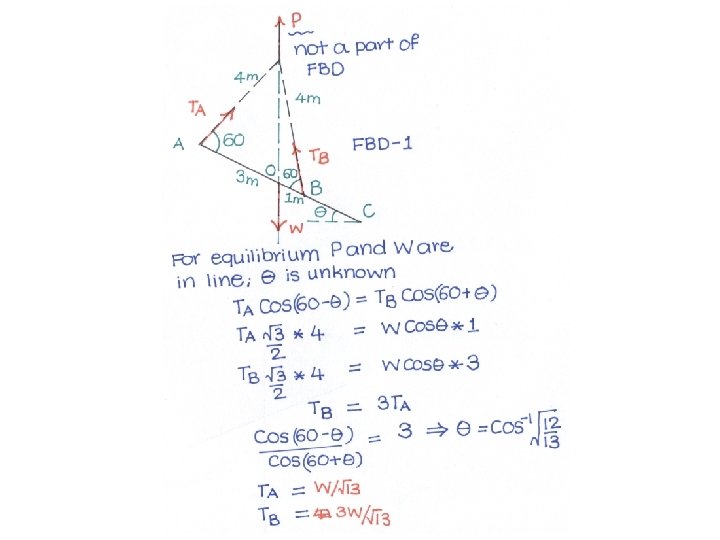 P
not a part of
FBD
4m
4m
TA
A
60
TB
FBD-1
3m
O
60
B
1m
θ
C
W
For equilibrium P and W are
in line; θ is unknown
TA Cos(60-θ) = TB Cos(60+θ)
TA √3/2 * 4 = W Cosθ * 1
TB √3/2 * 4 = W Cosθ * 3
TB = 3TA
Cos(60-θ)/Cos(60+θ) = 3 ⇒ θ = Cos⁻¹√12/13
TA = W/√13
TB = 3W/√13